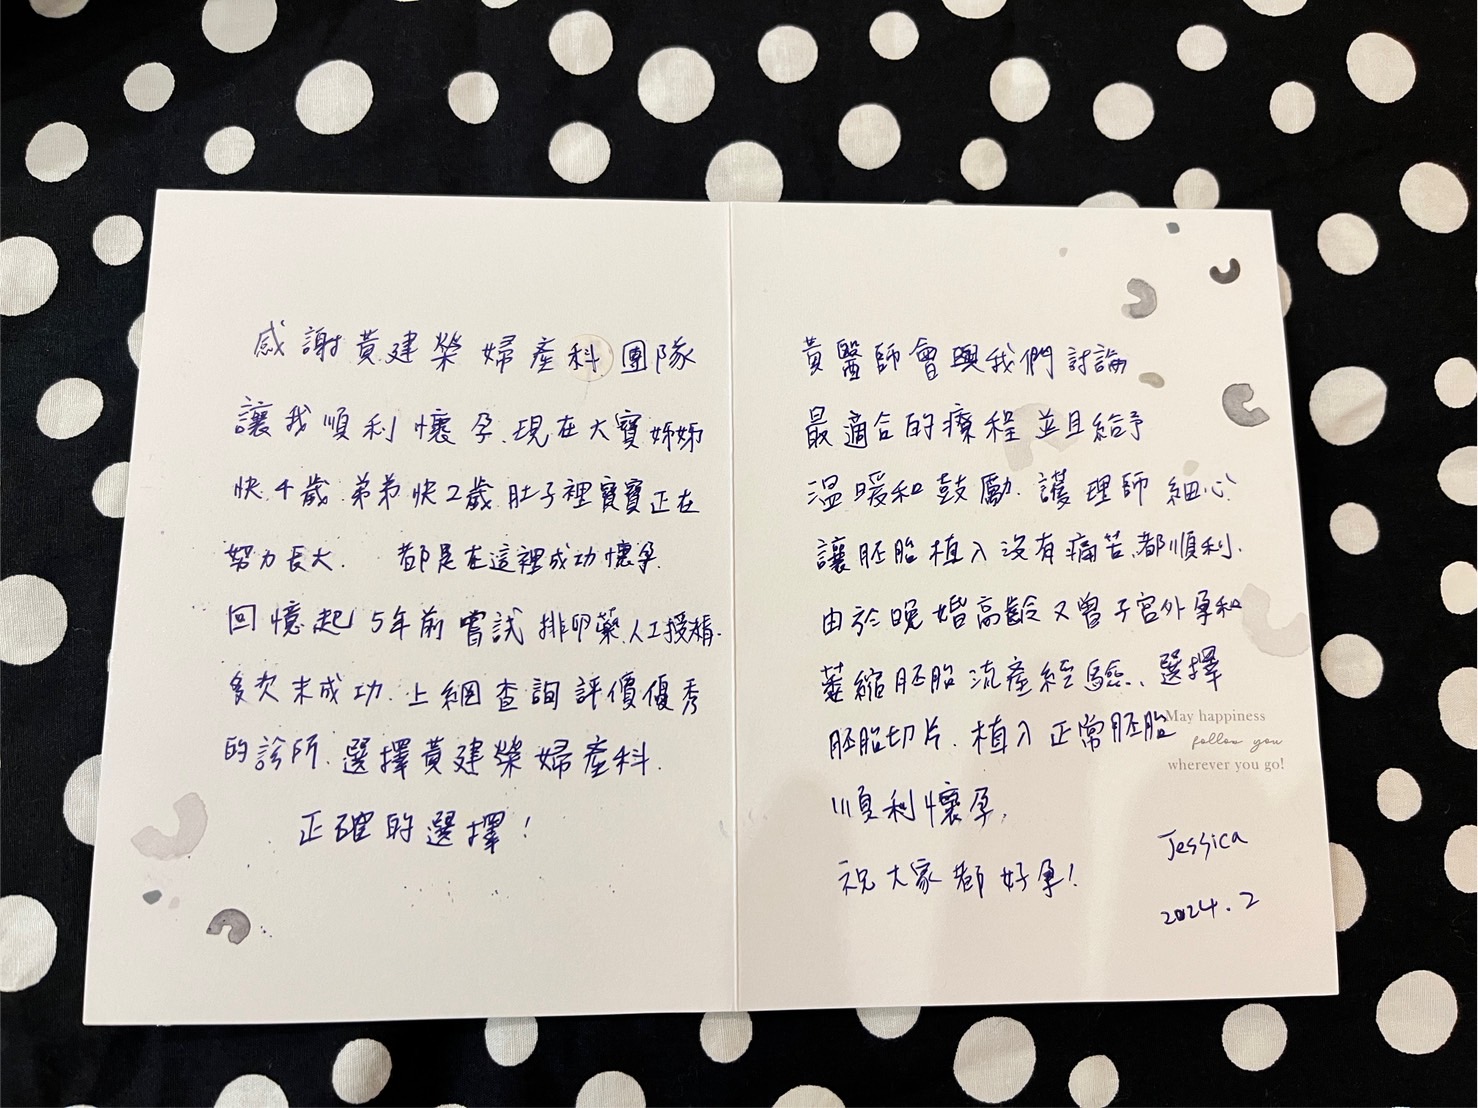 感謝黃建榮婦產科團隊
讓我順利懷孕.現在大寶姊姊
快4歲.弟弟快2歲肚子裡寶寶正在
努力長大. 都是在這裡成功懷孕.
回憶起5年前嘗試排卵藥.人工授精.
多次未成功.上網查詢評價優秀
的診所.選擇黃建榮婦產科.
正確的選擇!
黃醫師會與我們討論
最適合的療程並且給予
溫暖和鼓勵.護理師細心
讓胚胎植入沒有痛苦.都順利.
由於晚婚高齡又曾子宮外孕和
萎縮胚胎流產經驗、選擇
胚胎切片.植入正常胚胎
順利懷孕.
祝大家都好孕!
May happiness
follow you
wherever you go!
Jessica
2024.2